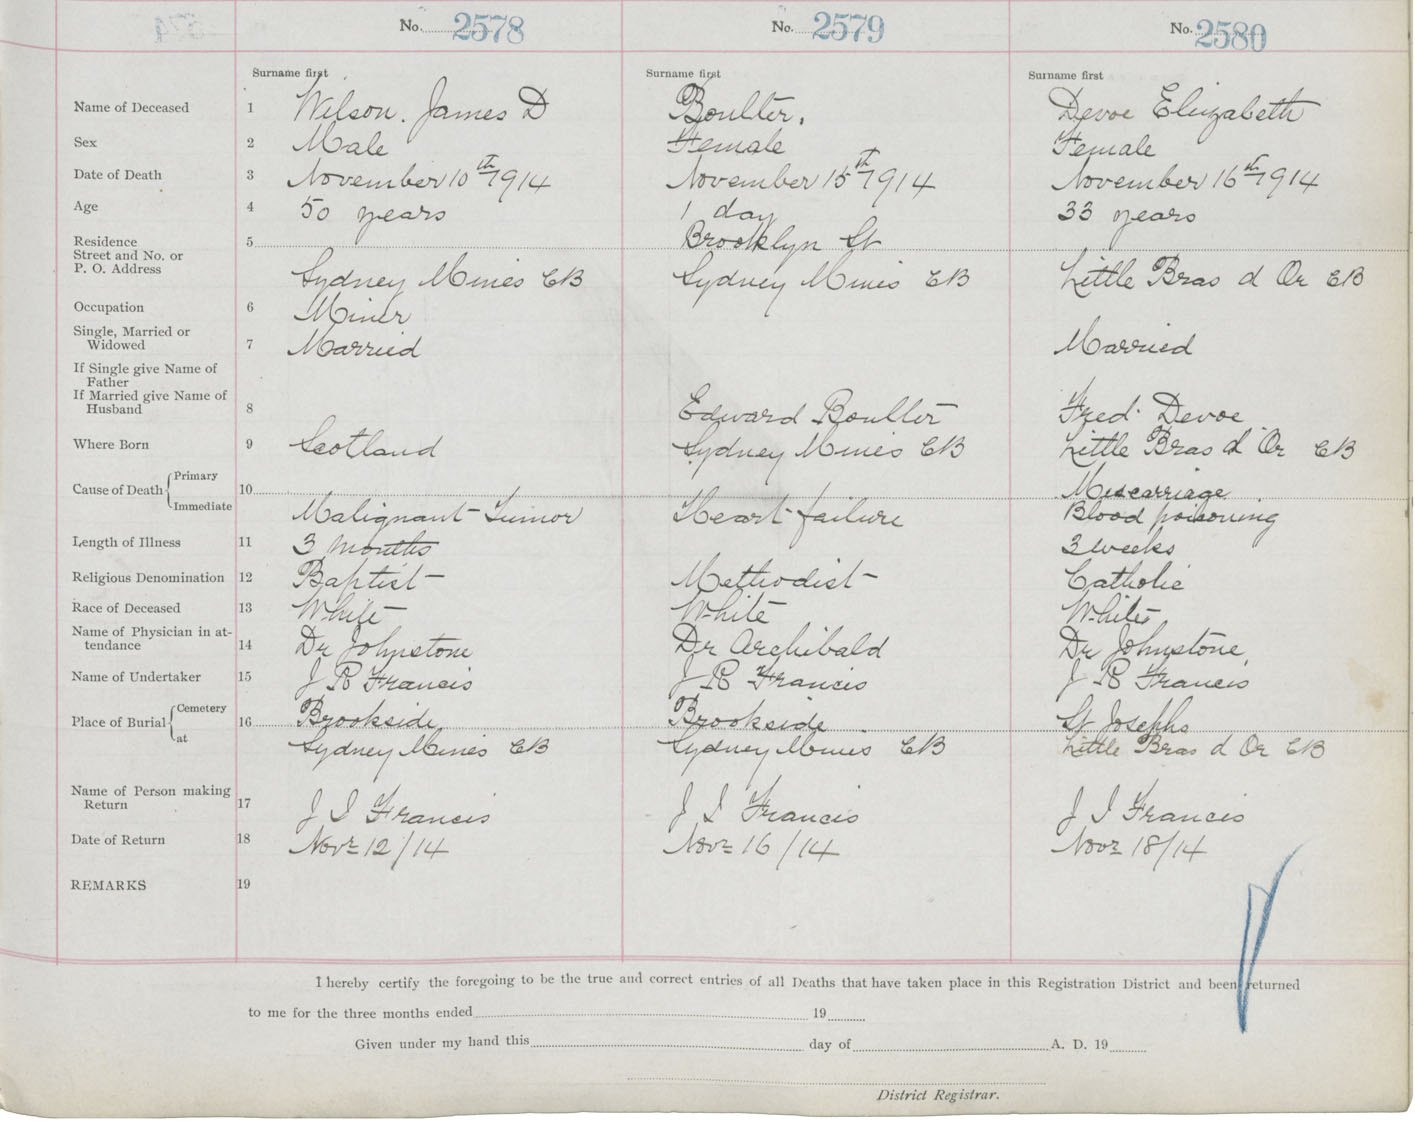 No. 2578 No. 2579 No. 2580
Surname first Surname first Surname first
Name of Deceased 1 Wilson. James D Boulter. Devoe Elizabeth
Sex 2 Male Female Female
Date of Death 3 November 10th 1914 November 15th 1914 November 16th 1914
Age 4 50 years 1 day 33 years
Residence 5 Brooklyn St
Street and No. or
P. O. Address Sydney Mines CB Sydney Mines CB Little Bras d Or CB
Occupation 6 Miner
Single, Married or
Widowed 7 Married Married
If Single give Name of
Father
If Married give Name of
Husband 8 Edward Boulter Fred Devoe
Where Born 9 Scotland Sydney Mines CB Little Bras d'Or CB
Cause of Death Primary 10 Miscarriage
Immediate Malignant Tumor Heart failure Blood poisoning
Length of Illness 11 3 months 3 weeks
Religious Denomination 12 Baptist Methodist Catholic
Race of Deceased 13 White White White
Name of Physician in at-
tendance 14 Dr Johnstone Dr Archibald Dr Johnstone
Name of Undertaker 15 J R Francis J R Francis J R Francis
Place of Burial Cemetery 16 Brookside Brookside St Josephs
at Sydney Mines CB Sydney Mines CB Little Bras d Or CB
Name of Person making
Return 17 J I Francis J I Francis J I Francis
Date of Return 18 Novr 12/14 Novr 16/14 Novr 18/14
REMARKS 19
I hereby certify the foregoing to be the true and correct entries of all Deaths that have taken place in this Registration District and been returned
to me for the three months ended 19
Given under my hand this day of A. D. 19
District Registrar.